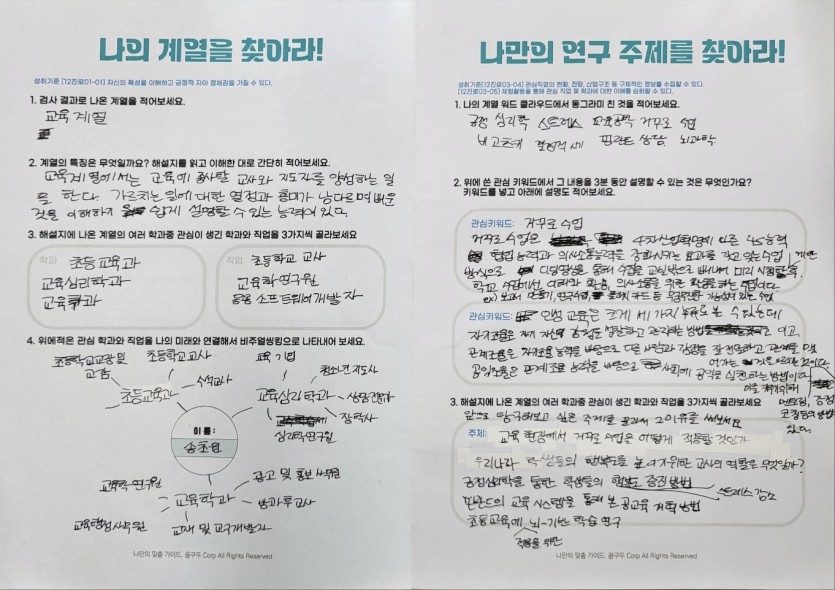 나의 계열을 찾아라!
성취기준 [12진로01-01] 자신의 특성을 이해하고 긍정적 자아 정체감을 가질 수 있다.
1. 검사 결과로 나온 계열을 적어보세요.
교육 계열
2. 계열의 특징은 무엇일까요? 해설지를 읽고 이해한 대로 간단히 적어보세요.
교육계열에서는 교육에 종사할 교사와 지도자를 양성하는 일
을 한다. 가르치는 일에 대한 열정과 흥미가 남다르며 배운
것을 이해하기 쉽게 설명할 수 있는 능력이 있다.
3. 해설지에 나온 계열의 여러 학과중 관심이 생긴 학과와 직업을 3가지씩 골라보세요
학과
초등 교육과
교육심리학과
교육학과
직업
초등학교 교사
교육학 연구원
응용 소프트웨어 개발자
4. 위에적은 관심 학과와 직업을 나의 미래와 연결해서 비주얼씽킹으로 나타내어 보세요.
초등학교 교장 및
교감
초등학교 교사
수석교사
초등교육과
교육 기업
청소년 지도사
교육심리학과
장학사
심리학 연구원
이 름:
교육학 연구원
교육학과
광고 및 홍보 사무원
방과후 교사
교육행정 사무원
교재 및 교구 개발자
나만의 맞춤 가이드, 꿈구두 Corp All Rights Reserved
나만의 연구 주제를 찾아라!
성취기준[12진로03-04] 관심직업의 현황, 전망, 산업구조 등 구체적인 정보를 수집할 수 있다.
[12진로03-05] 체험활동을 통해 관심 직업 및 학과에 대한 이해를 심화할 수 있다.
1. 나의 계열 워드 클라우드에서 동그라미 친 것을 적어보세요.
긍정 심리학 스트레스 교육공학 거꾸로 수업
핀란드 상담 뇌과학
2. 위에 쓴 관심 키워드에서 그 내용을 3분 동안 설명할 수 있는 것은 무엇인가요?
키워드를 넣고 아래에 설명도 적어보세요.
관심키워드: 거꾸로 수업
거꾸로 수업은 4차산업혁명에 따른 사고능력
협업 능력과 의사소통능력을 강화시키는 효과를 갖고 있는 수업
방식으로 디딤영상을 통해 수업을 교실밖으로 빼내어 미리 시청한 후
학교 수업에서 이해와 활용, 의사소통을 위한 활동을 하는 수업이다.
관심키워드: 인성 교육은 크게 세 가지 부류로 볼 수 있는데
자기조율은 자기 자신의 감정을 발산하고 관리하는 방법 이고,
관계조율은 자기조율 능력을 바탕으로 다른 사람과 갈등을 잘 전달하고 관계를 맺
어가는 것을
공익조율은 관계조율 능력을 바탕으로 사회에 공익을 실현하는 방법이다
이를
멘토링, 긍정
있다.
3. 해설지에 나온 계열의 여러 학과중 관심이 생긴 학과와 직업을 3가지씩 골라보세요
앞으로 탐구해보고 싶은 주제를 고르며 그 이유를 써보세요
주제: 교육 현장에서 거꾸로 수업은 어떻게 적용할 것인가
우리나라 학생들의 행복도를 높여가기위한 교사의 역할은 무엇일까?
긍정심리학을 통한 학생들의 행복도 증진 방법
스트레스 감소
핀란드의 교육 시스템을 통해 본 공교육 개혁 방법
초등교육에 뇌-기반 학습 연구
적용을 위한
나만의 맞춤 가이드, 꿈구두 Corp All Rights Reserved